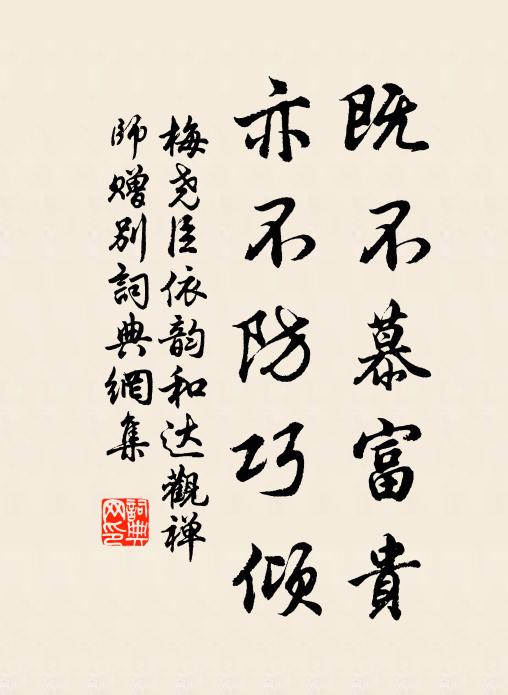 既不慕富貴
亦不防巧傾
梅尧臣依韵和达觀禅
師赠别詞典網集
詞典
网印